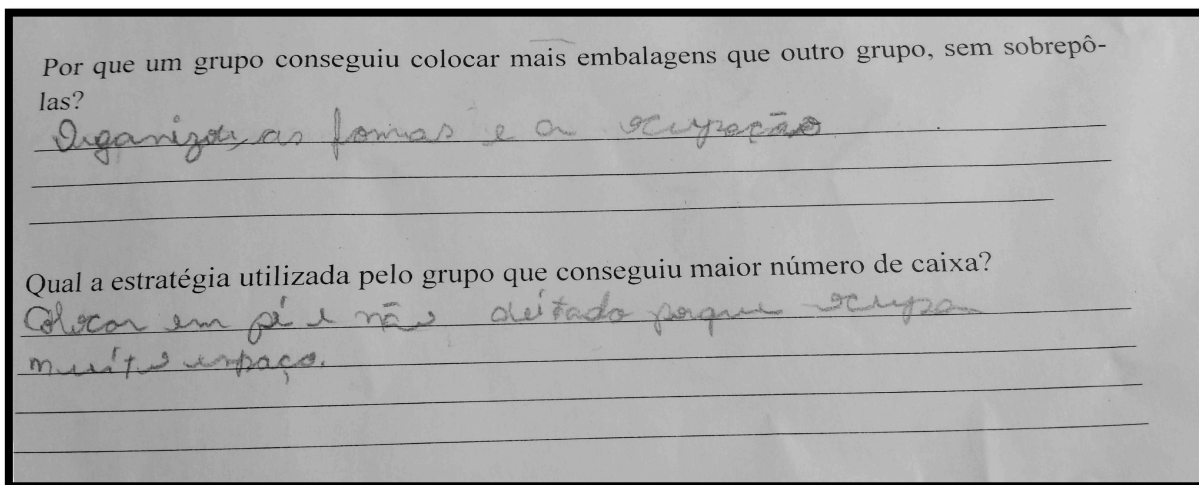 Por que um grupo conseguiu colocar mais embalagens que outro grupo, sem sobrepô-
las?
Organizou as formas e a ocupação
Qual a estratégia utilizada pelo grupo que conseguiu maior número de caixa?
Colocar em pé e não deitado porque ocupa
muito espaço.